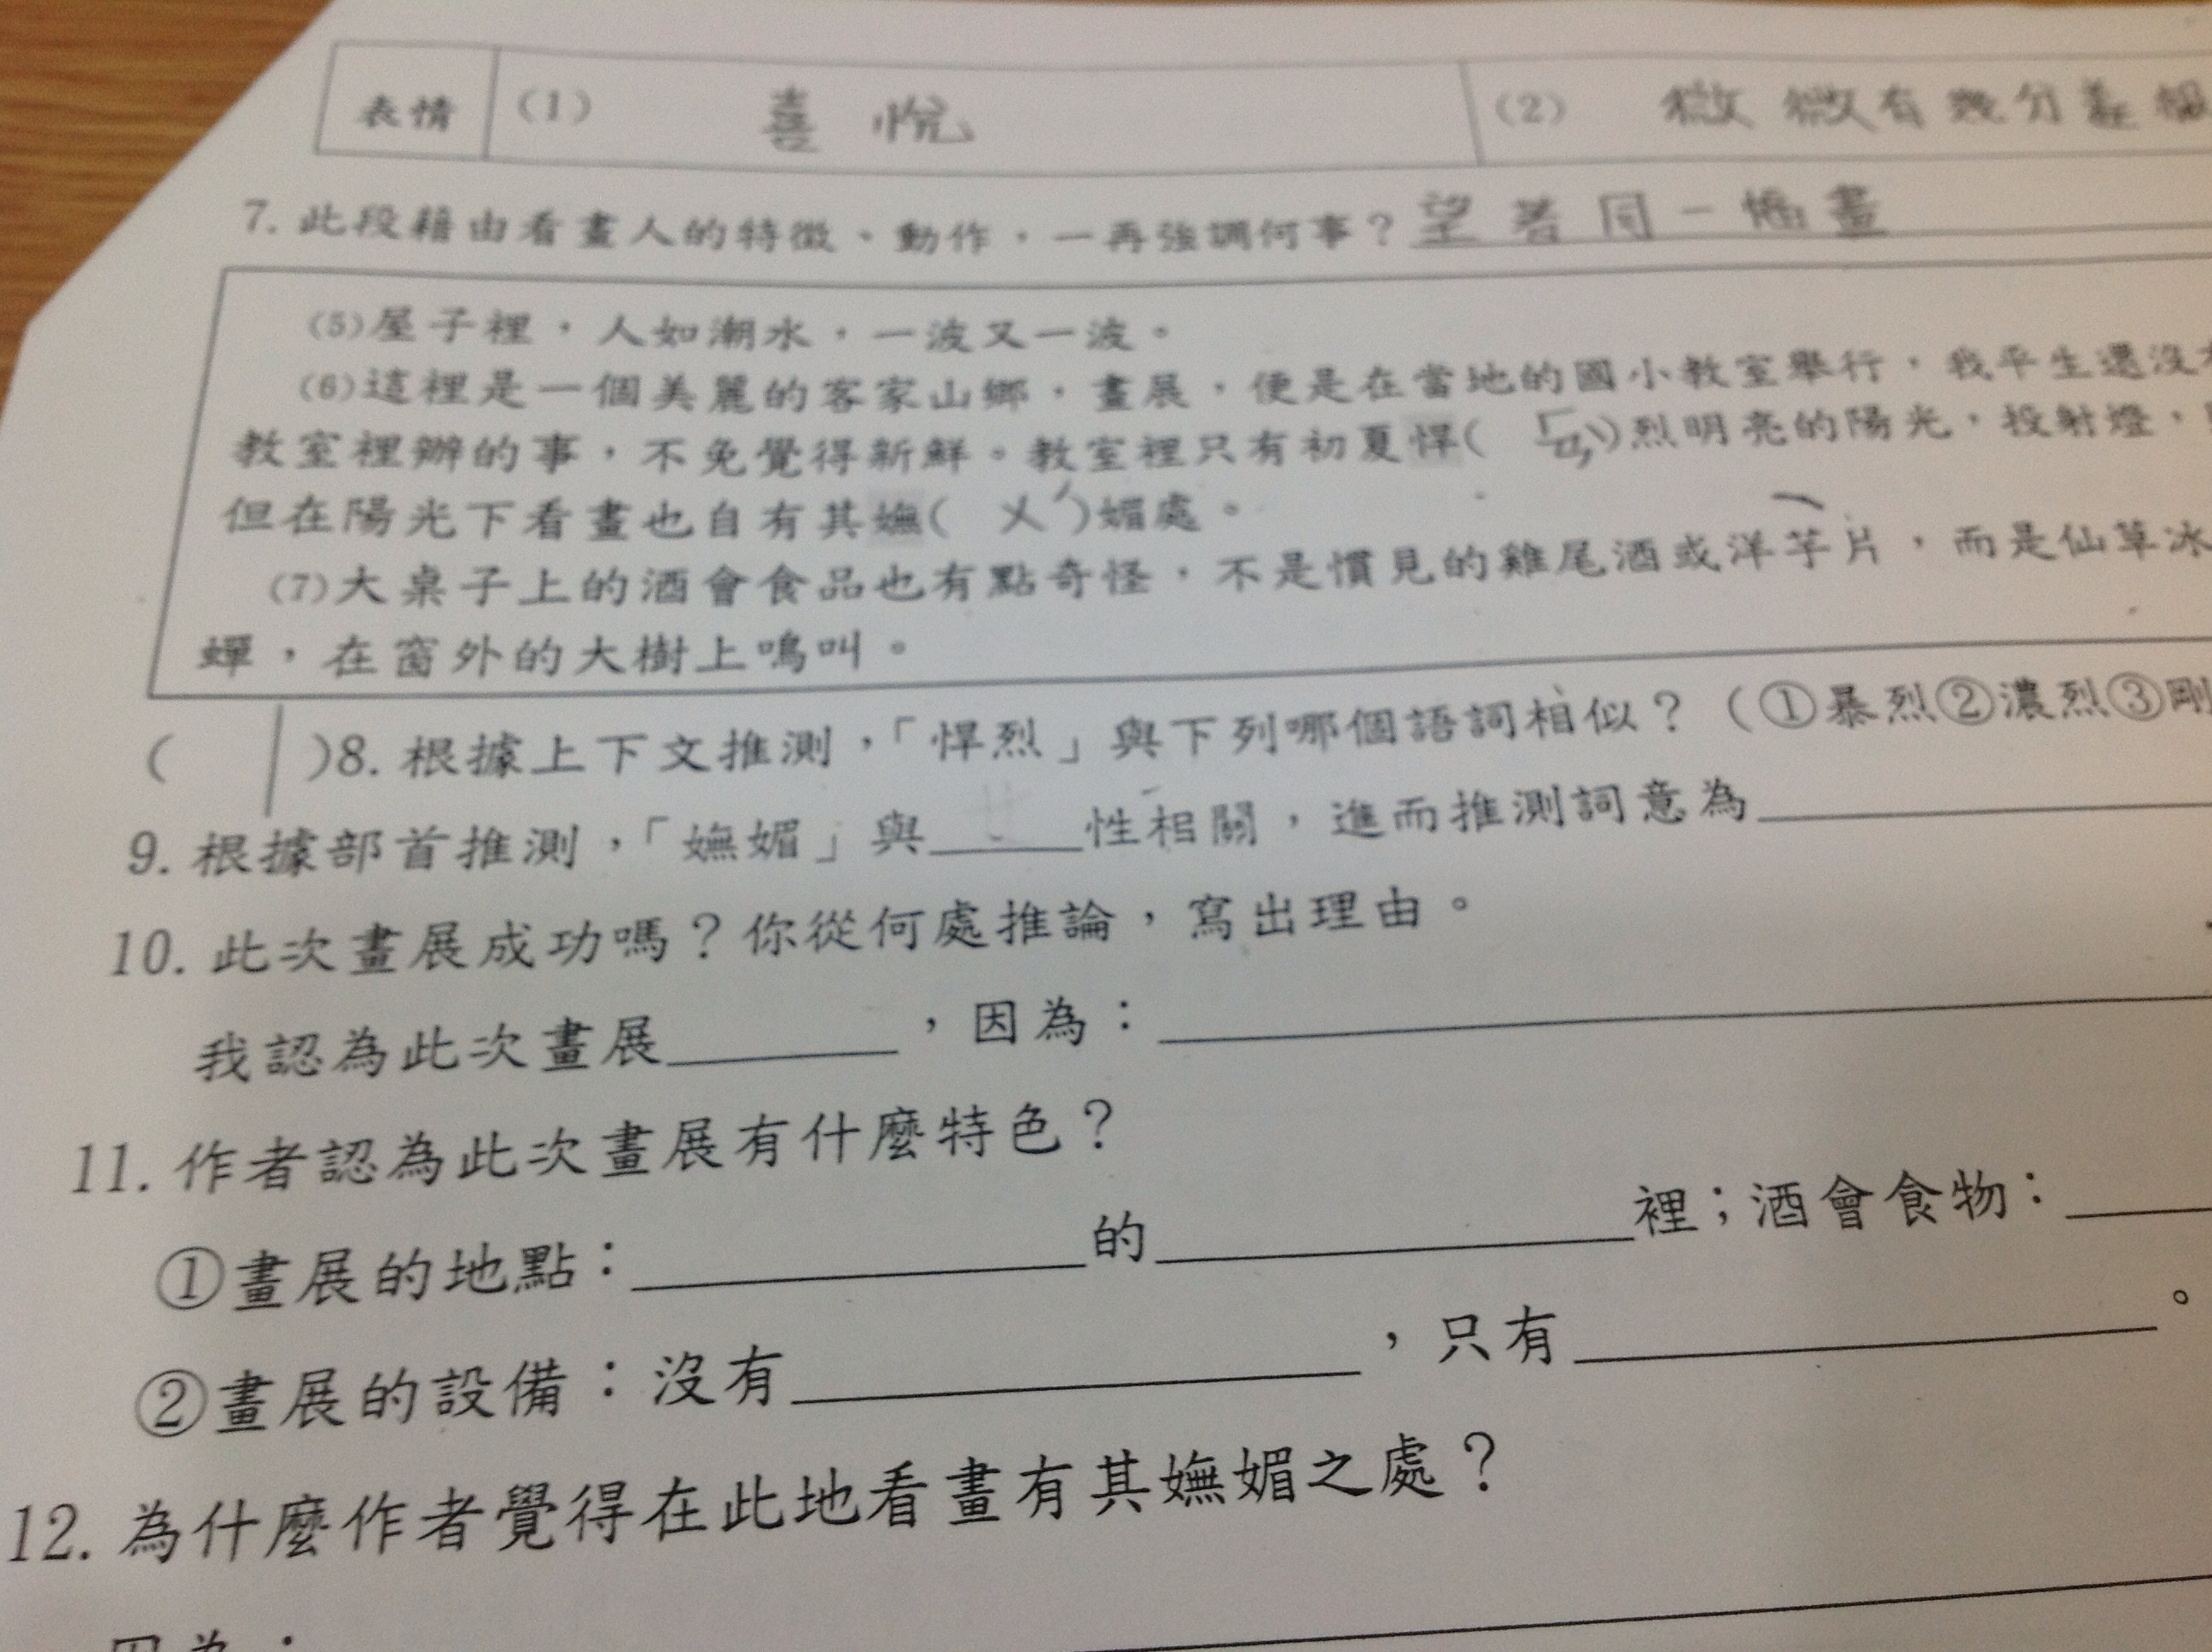 表情 (1) 喜悅 (2) 微微有幾分羞
7. 此段藉由看畫人的特徵、動作，一再強調何事？望著同一幅畫
(5)屋子裡，人如潮水，一波又一波。
(6)這裡是一個美麗的客家山鄉，畫展，便是在當地的國小教室舉行，我平生還沒
教室裡辦的事，不免覺得新鮮。教室裡只有初夏悍(ㄏㄢˋ)烈明亮的陽光，投射燈，
但在陽光下看畫也自有其嫵(ㄨˇ)媚處。
(7)大桌子上的酒會食品也有點奇怪，不是慣見的雞尾酒或洋芋片，而是仙草冰
蟬，在窗外的大樹上鳴叫。
( | )8. 根據上下文推測，「悍烈」與下列哪個語詞相似？（①暴烈②濃烈③剛
9. 根據部首推測，「嫵媚」與____性相關，進而推測詞意為________
10. 此次畫展成功嗎？你從何處推論，寫出理由。
我認為此次畫展______，因為：________
11. 作者認為此次畫展有什麼特色？
①畫展的地點：________的________裡；酒會食物：____
②畫展的設備：沒有________，只有________。
12. 為什麼作者覺得在此地看畫有其嫵媚之處？
因為：________